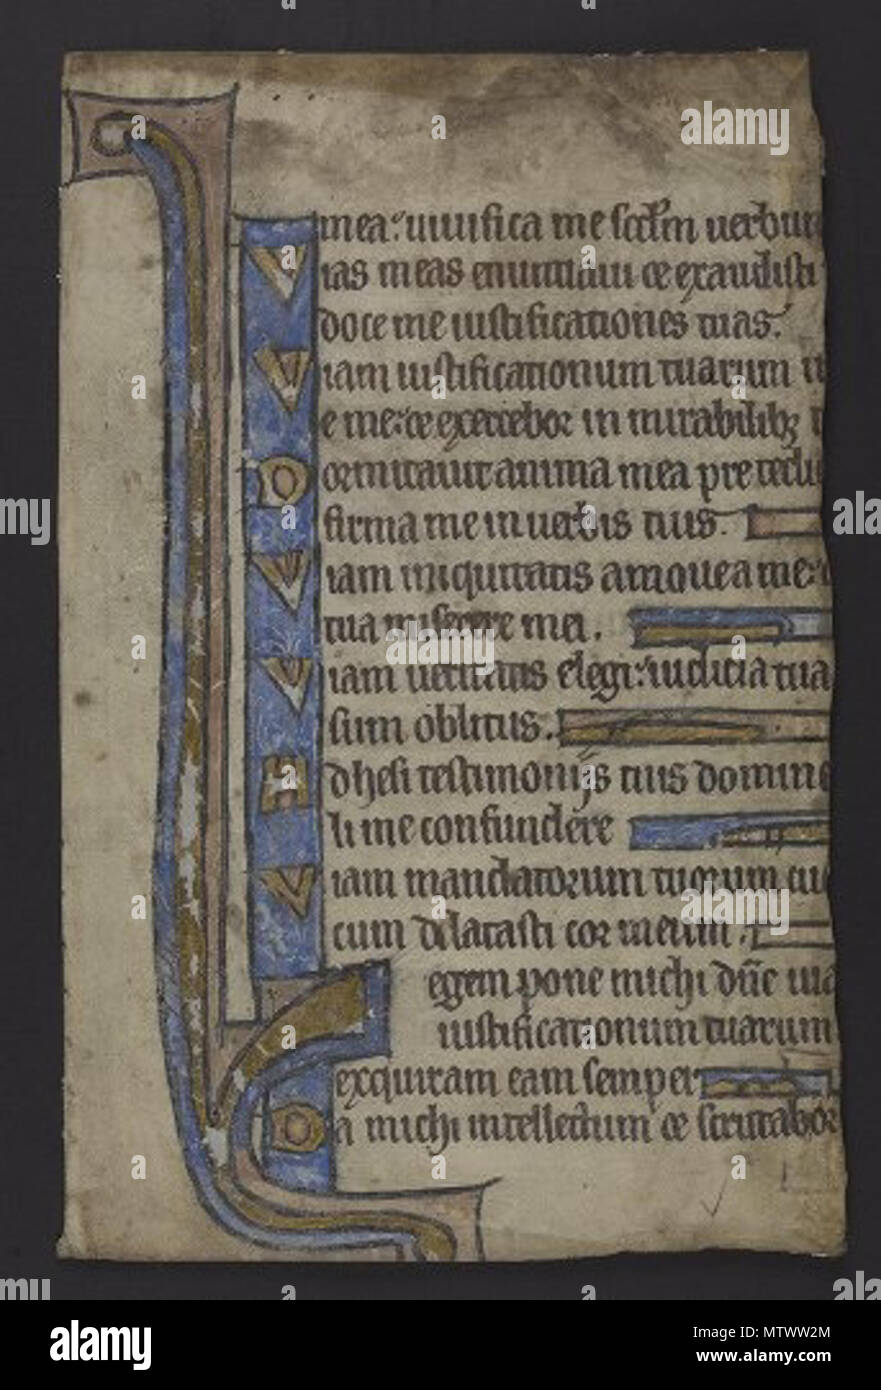 mea: uiuifica me scdm uerbu
Vias meas enuntiaui et exaudisti
doce me iustificationes tuas.
Viam iustificationum tuarum
e me: et exercebor in mirabilibꝫ
Dormitauit anima mea pre tediu
firma me in uerbis tuis.
Viam iniquitatis amoue a me:
tua miserere mei.
Viam ueritatis elegi: iudicia tua
sum oblitus.
Adhesi testimonijs tuis domine
li me confundere
Viam mandatorum tuorum cu
cum dilatasti cor meum.
Legem pone michi dñe uia
iustificationum tuarum
exquiram eam semper
Da michi intellectum et scrutabor
alamy
Image ID: MTWW2M
www.alamy.com